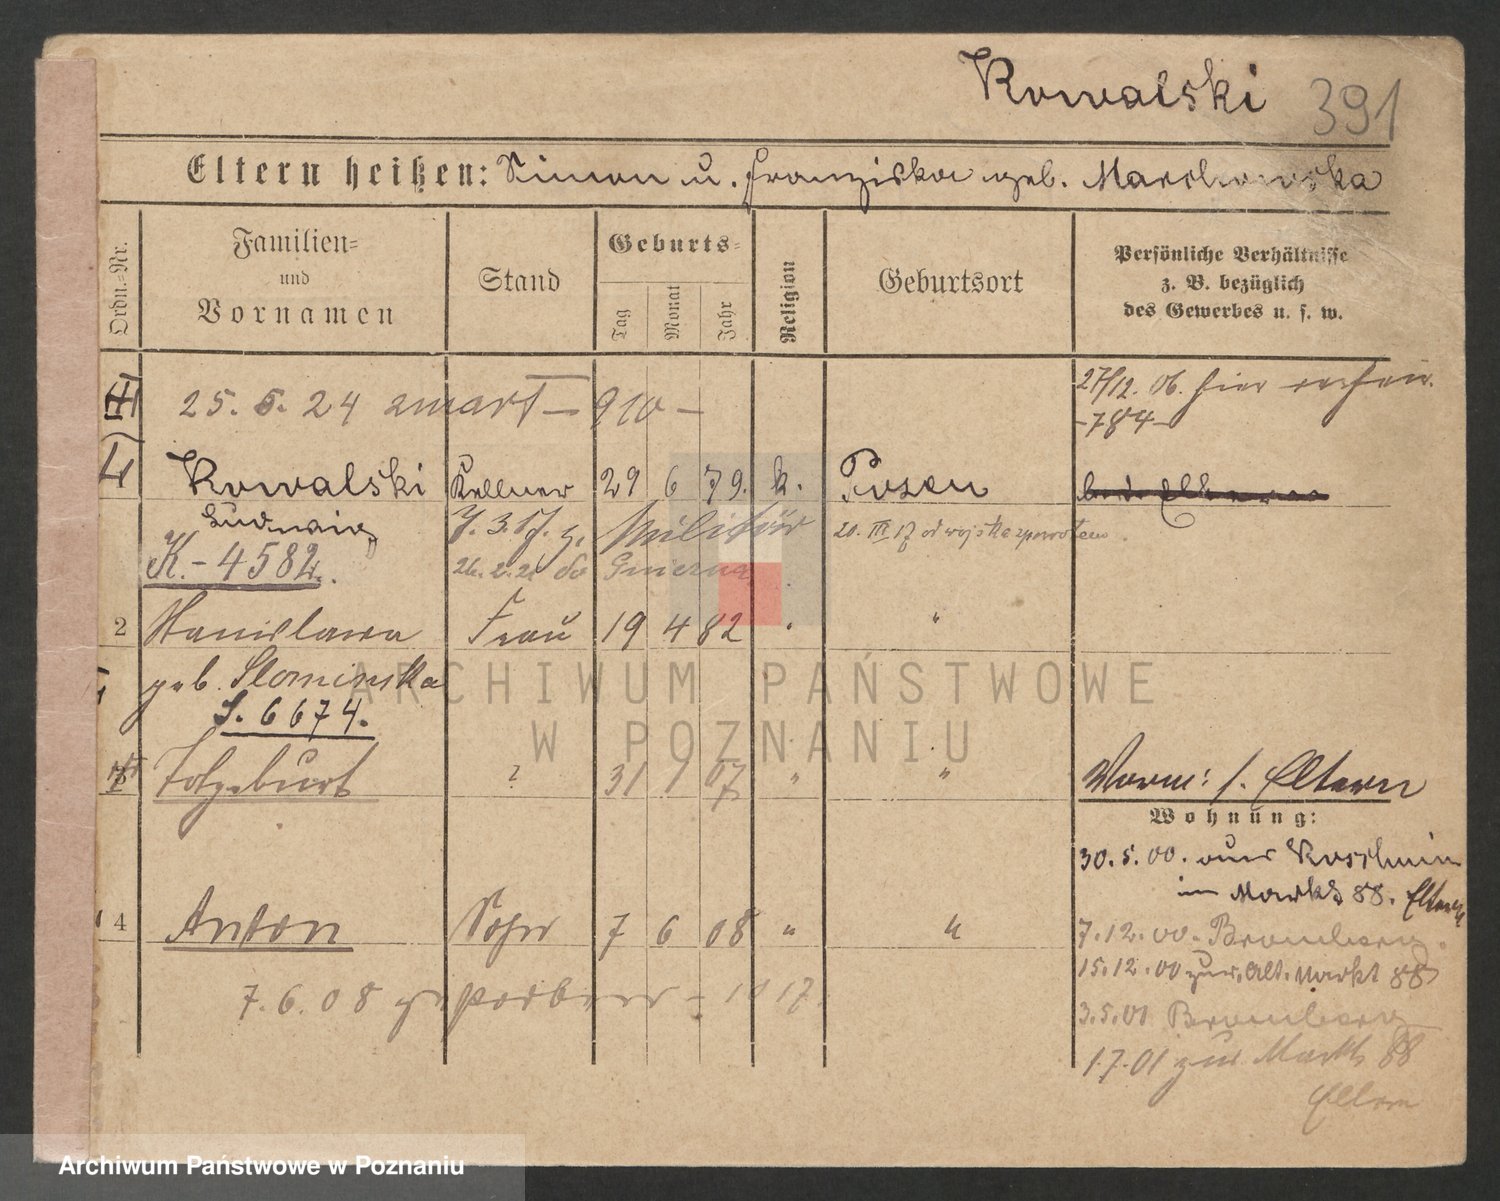 Kowalski 391
Eltern heißen: Simon u. Franziska geb. Marchowska
Ordn.=Nr.
Familien=
und
Vornamen
Stand
Geburts=
Tag
Monat
Jahr
Religion
Geburtsort
Persönliche Verhältnisse
z. B. bezüglich
des Gewerbes u. s. w.
25. 5. 24 zmarł — 910 —
27/12. 06. hier
-784-
Kowalski Kellner 29 6 79. k. Posen
Ludwig
7. 3. 17. z. Militär
20. III 17 od wojska zpowrotem
K. - 4582.
26. 2. 21 do Gniezna
2 Stanislawa Frau 19 4 82 " "
geb. Slominska
S. 6674.
Totgeburt ? 31 1 07 " "
Vorm: s. Eltern
Wohnung:
30. 5. 00. aus Koschmin
im Markt 88. Eltern
4 Anton Sohn 7 6 08 " "
7. 12. 00. Bromberg.
15. 12. 00 zur. Alt. Markt 88
7. 6. 08 gestorben - 1017.
3. 5. 01 Bromberg
1. 7. 01 zur. Markt 88
Eltern
ARCHIWUM PAŃSTWOWE
W POZNANIU
Archiwum Państwowe w Poznaniu